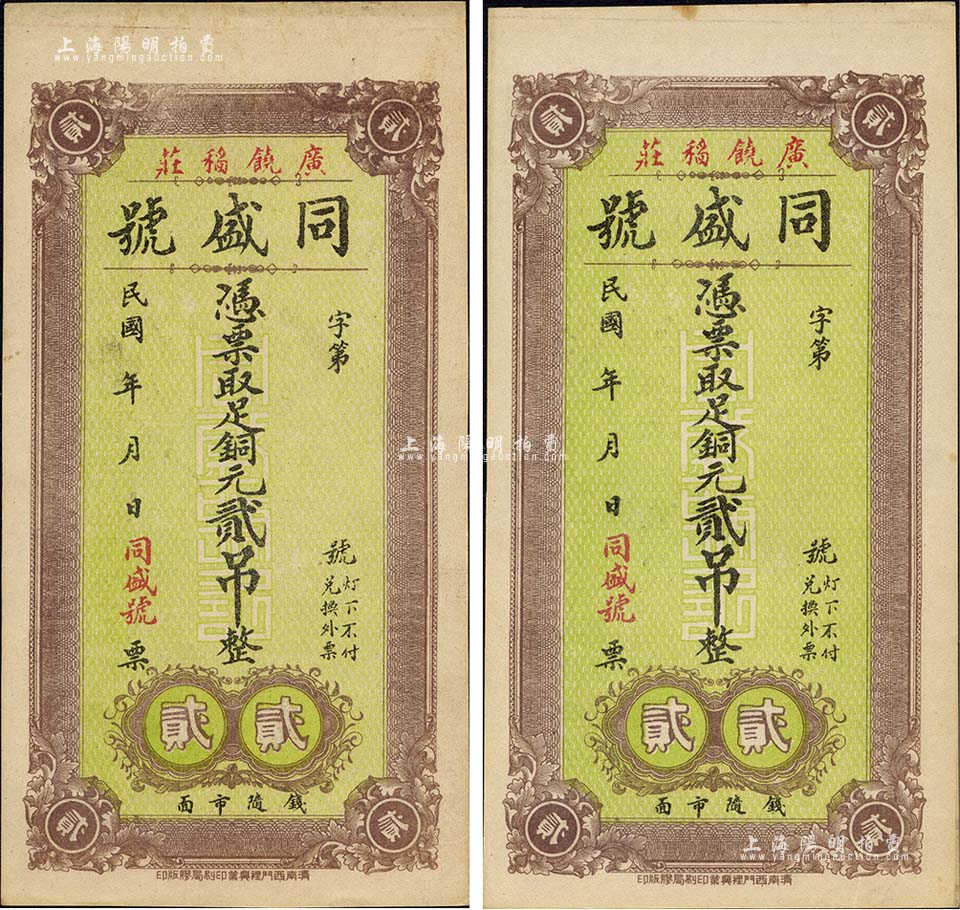 上海陽明拍賣
www.yangmingauction.com
貳 貳
廣饒稻莊
同盛號
字第 號
灯下不付
兑換外票
憑票取足銅元貳吊整
民國 年 月 日 同盛號 票
貳 貳
錢隨市面
貳 貳
濟南西門裡興業印刷局膠版印
貳 貳
廣饒稻莊
同盛號
字第 號
灯下不付
兑換外票
憑票取足銅元貳吊整
民國 年 月 日 同盛號 票
貳 貳
錢隨市面
貳 貳
濟南西門裡興業印刷局膠版印
上海陽明拍賣
www.yangmingauction.com
上海陽明拍賣
www.yangmingauction.com